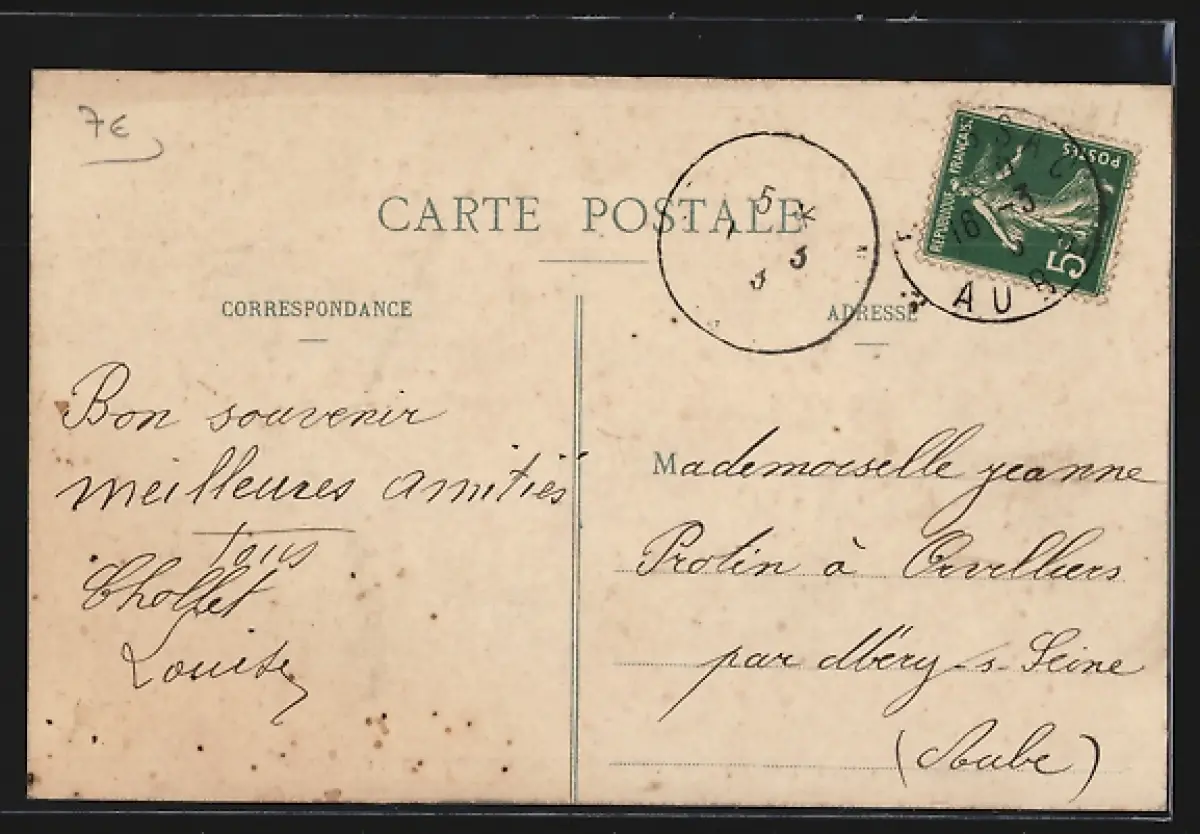 7€
CARTE POSTALE
CORRESPONDANCE
Bon souvenir
meilleures amitiés
tous
Chollet
Louise
5
3
3
RÉPUBLIQUE FRANÇAISE
POSTES
5
16 -3
AUBE
ADRESSE
Mademoiselle Jeanne
Protin à Orvilliers
par Méry-s-Seine
(Aube)